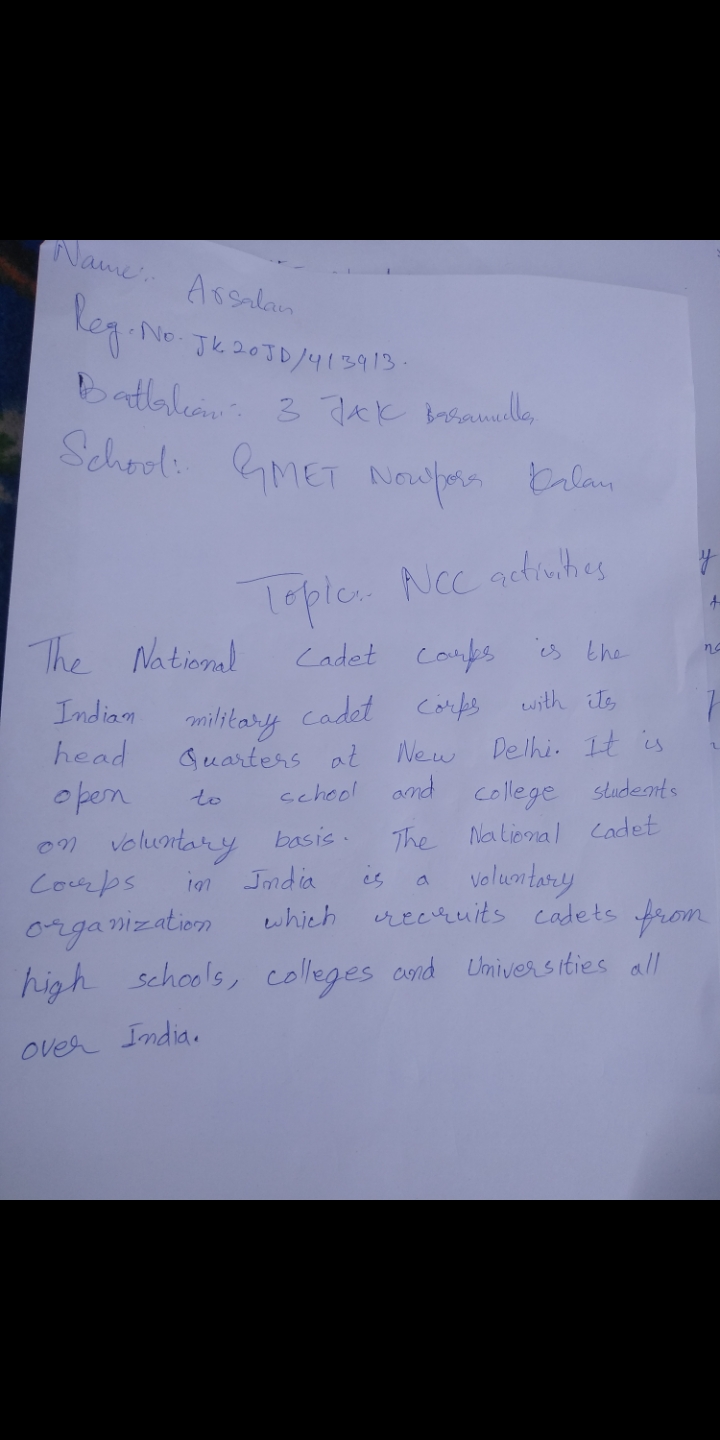 Name:. Arsalan
Reg. No. JK20JD/413913.
Battalion:. 3 J&K Baramulla
School:. GMET Nowpora Kalan
Topic:. NCC activities
The National Cadet Corps is the
Indian military cadet corps with its
head Quarters at New Delhi. It is
open to school and college students
on voluntary basis. The National Cadet
Corps in India is a voluntary
organization which recruits cadets from
high schools, colleges and Universities all
over India.